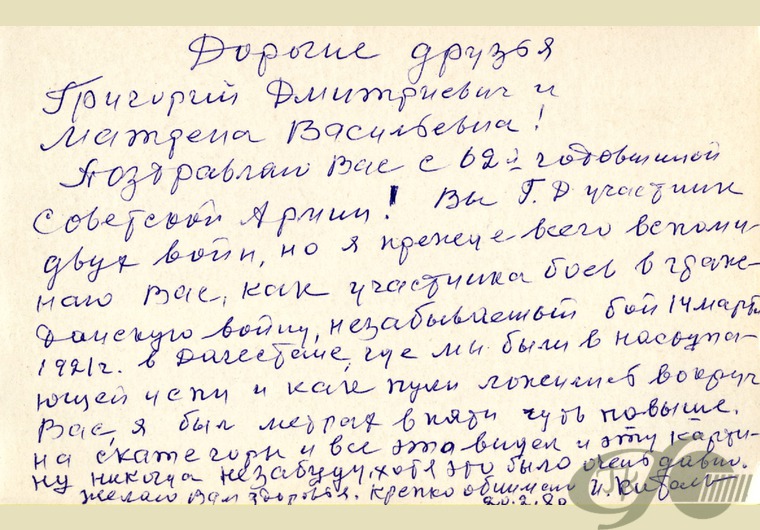 Дорогие друзья
Григорий Дмитриевич и
Матрена Васильевна!
Поздравляю Вас с 62й годовщиной
Советской Армии! Вы Г.Д участник
двух войн, но я прежде всего вспоми-
наю Вас, как участника боев в граж-
данскую войну, незабываемый бой 14 марта
1921г. в Дагестане, где мы были в наступа-
ющей цепи и как пули ложились вокруг
Вас, я был метрах в пяти чуть повыше.
на скате горы и все это видел и эту карти-
ну никогда незабуду, хотя это было очень давно.
желаю Вам здоровья. Крепко обнимаю И.
20.2.80